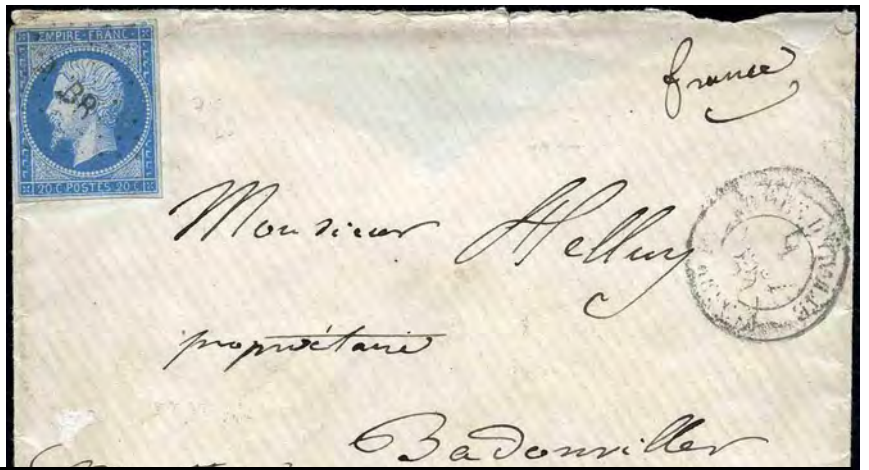 EMPIRE-FRANC-
20 C POSTES 20 C
france
Monsieur Helluy
D'ITALIE
propriétaire
Badonviller